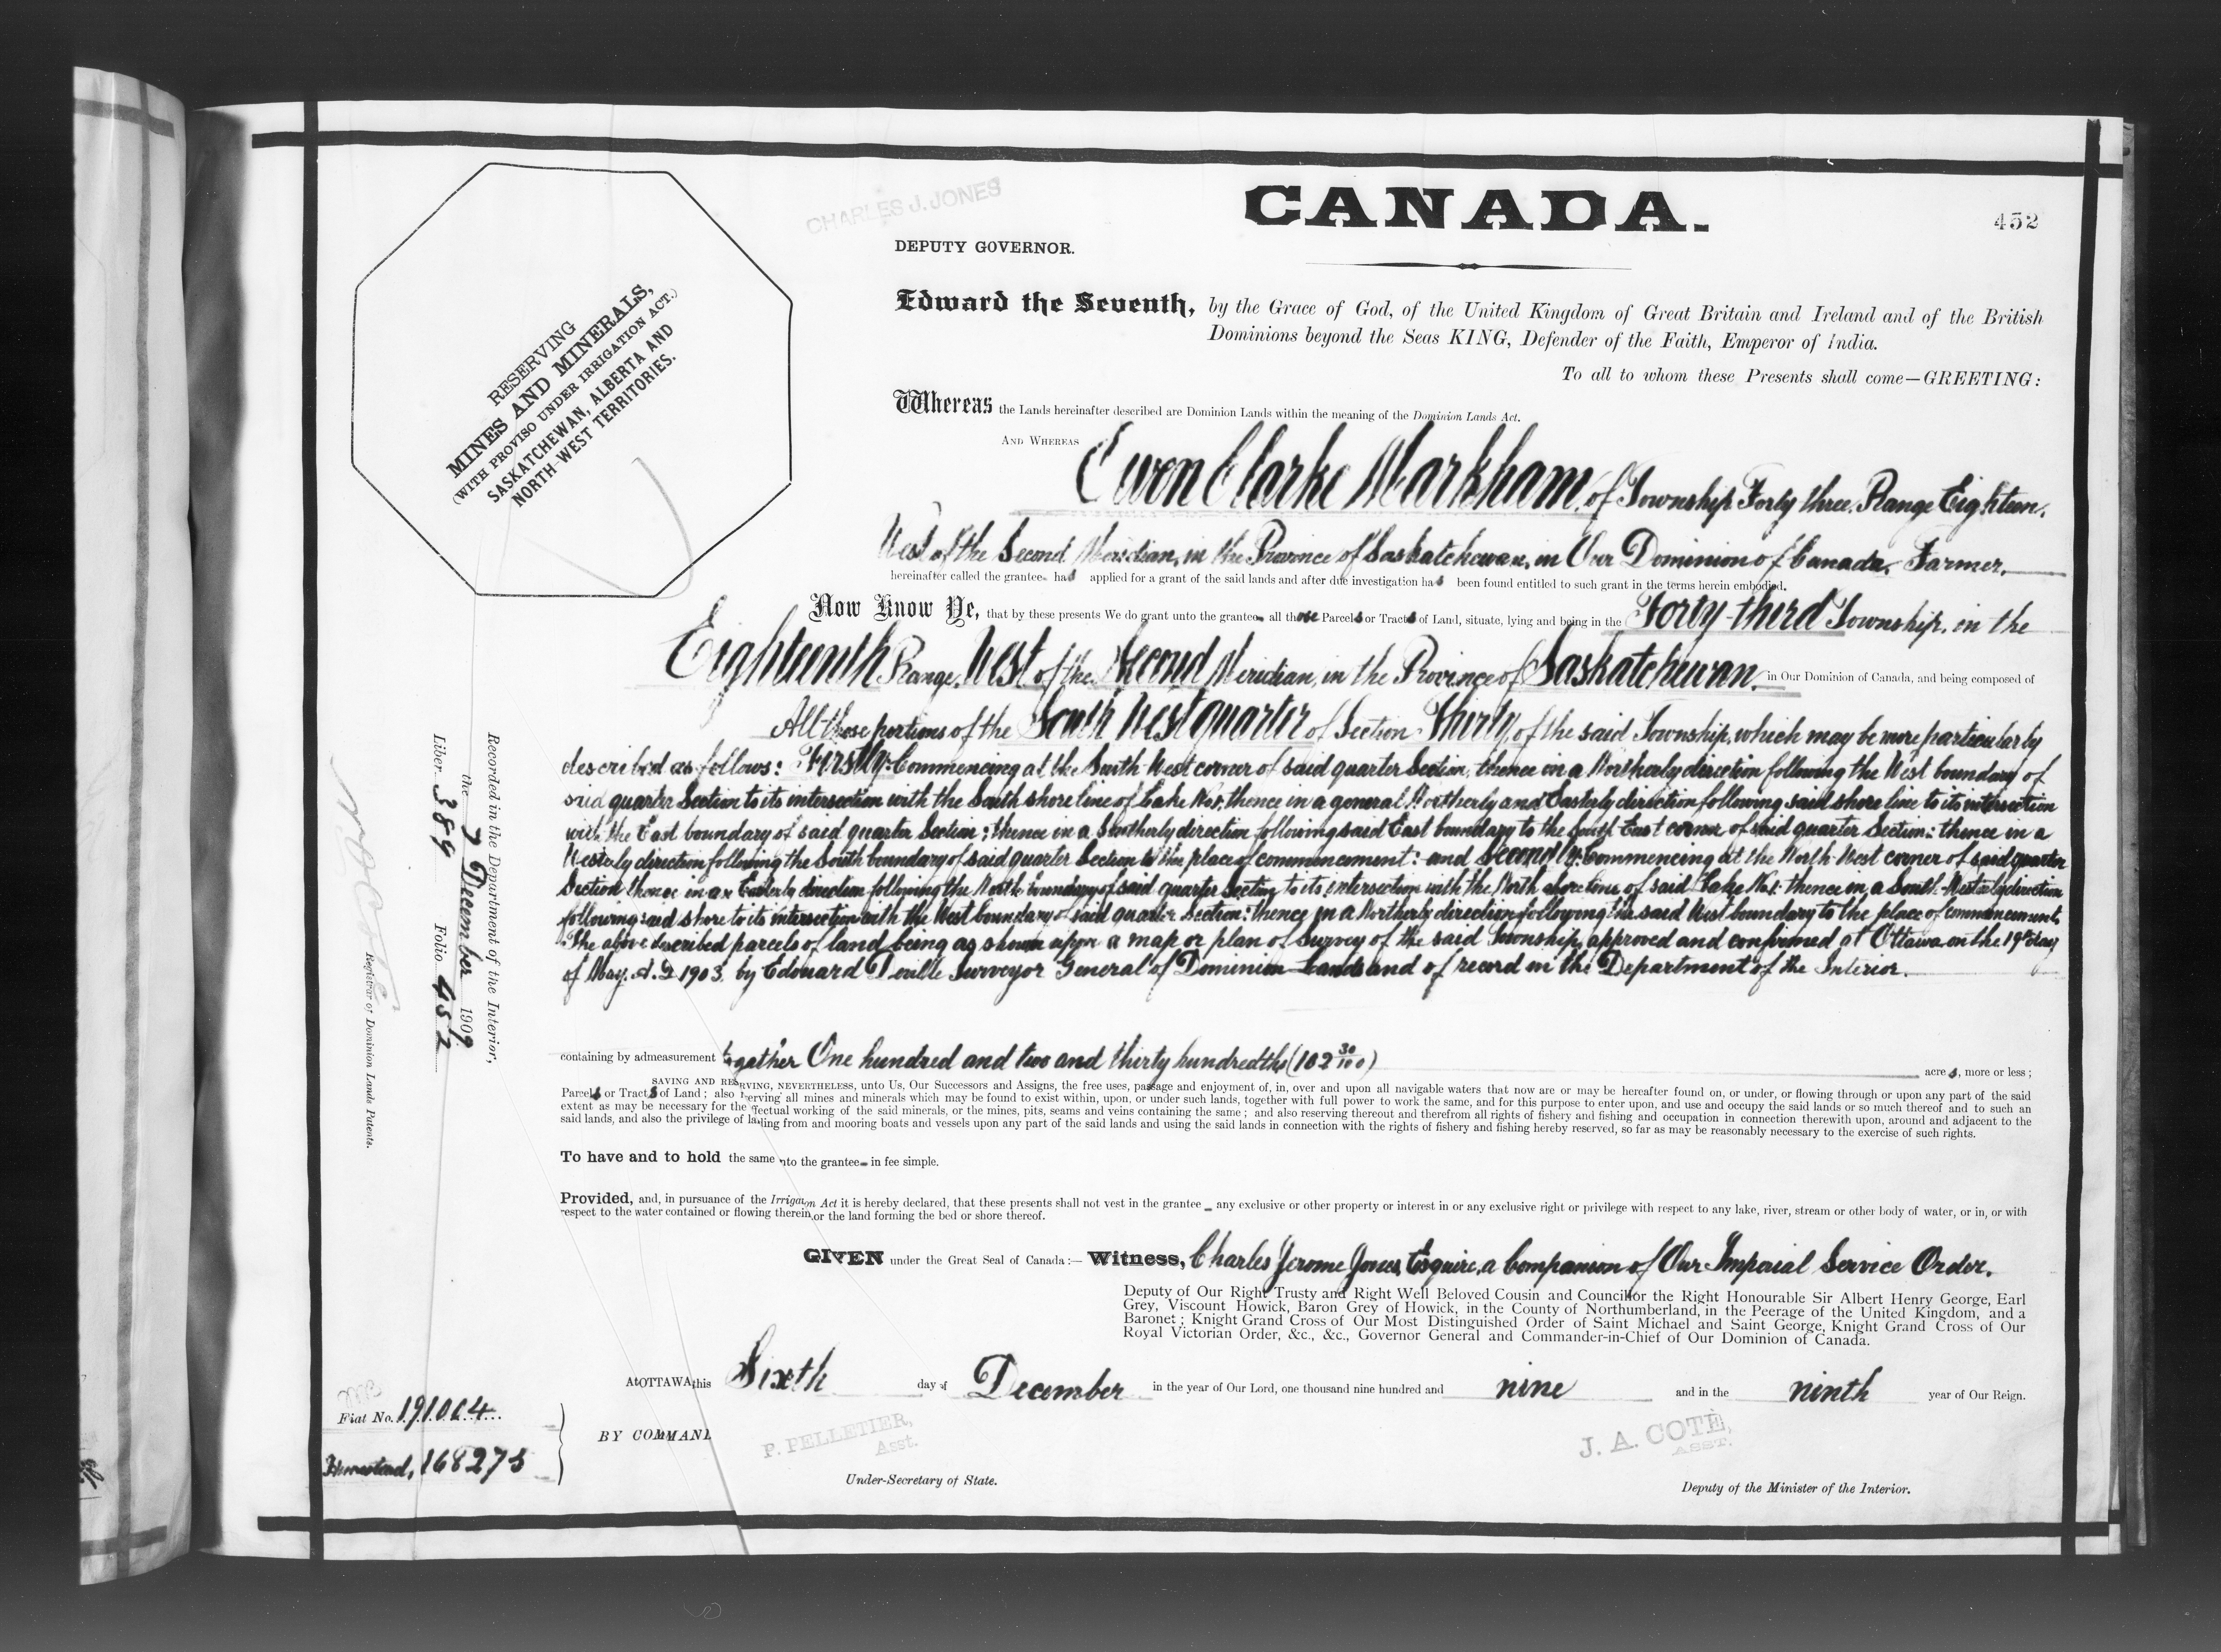 CHARLES J. JONES
CANADA.
452
DEPUTY GOVERNOR.
RESERVING
MINES AND MINERALS,
(WITH PROVISO UNDER IRRIGATION ACT.)
SASKATCHEWAN, ALBERTA AND
NORTH-WEST TERRITORIES.
Edward the Seventh, by the Grace of God, of the United Kingdom of Great Britain and Ireland and of the British
Dominions beyond the Seas KING, Defender of the Faith, Emperor of India.
To all to whom these Presents shall come—GREETING:
Whereas the Lands hereinafter described are Dominion Lands within the meaning of the Dominion Lands Act.
AND WHEREAS Ewen Clarke Markham, of Township Forty three, Range Eighteen,
West of the Second Meridian, in the Province of Saskatchewan, in Our Dominion of Canada, Farmer,
hereinafter called the grantee has applied for a grant of the said lands and after due investigation has been found entitled to such grant in the terms herein embodied.
Now Know Ye, that by these presents We do grant unto the grantee all those Parcels or Tracts of Land, situate, lying and being in the Forty-third Township, in the
Eighteenth Range, West of the Second Meridian, in the Province of Saskatchewan, in Our Dominion of Canada, and being composed of
All those portions of the South West quarter of Section Thirty, of the said Township, which may be more particularly
described as follows: Firstly: Commencing at the South West corner of said quarter Section, thence in a Northerly direction following the West boundary of
said quarter Section to its intersection with the South shore line of Lake No 1, thence in a general Northerly and Easterly direction following said shore line to its intersection
with the East boundary of said quarter Section; thence in a Southerly direction following said East boundary to the South East corner of said quarter Section; thence in a
Westerly direction following the South boundary of said quarter Section to the place of commencement: and Secondly: Commencing at the North West corner of said quarter
Section thence in an Easterly direction following the North boundary of said quarter Section to its intersection with the North shore line of said Lake No 1: thence in a South-Westerly direction
following said shore to its intersection with the West boundary of said quarter Section: thence in a Northerly direction following the said West boundary to the place of commencement,
The above described parcels of land being as shown upon a map or plan of Survey of the said Township, approved and confirmed at Ottawa on the 19th day
of May, A.D. 1903, by Edouard Deville Surveyor General of Dominion Lands and of record in the Department of the Interior.
containing by admeasurement together One hundred and two and thirty hundredths (102 30/100) acres, more or less;
SAVING AND RESERVING, NEVERTHELESS, unto Us, Our Successors and Assigns, the free uses, passage and enjoyment of, in, over and upon all navigable waters that now are or may be hereafter found on, or under, or flowing through or upon any part of the said
Parcels or Tracts of Land; also reserving all mines and minerals which may be found to exist within, upon, or under such lands, together with full power to work the same, and for this purpose to enter upon, and use and occupy the said lands or so much thereof and to such an
extent as may be necessary for the effectual working of the said minerals, or the mines, pits, seams and veins containing the same; and also reserving thereout and therefrom all rights of fishery and fishing and occupation in connection therewith upon, around and adjacent to the
said lands, and also the privilege of landing from and mooring boats and vessels upon any part of the said lands and using the said lands in connection with the rights of fishery and fishing hereby reserved, so far as may be reasonably necessary to the exercise of such rights.
To have and to hold the same unto the grantee in fee simple.
Provided, and, in pursuance of the Irrigation Act it is hereby declared, that these presents shall not vest in the grantee any exclusive or other property or interest in or any exclusive right or privilege with respect to any lake, river, stream or other body of water, or in, or with
respect to the water contained or flowing therein, or the land forming the bed or shore thereof.
GIVEN under the Great Seal of Canada:— Witness, Charles Jerome Jones, Esquire, a Companion of Our Imperial Service Order.
Deputy of Our Right Trusty and Right Well Beloved Cousin and Councillor the Right Honourable Sir Albert Henry George, Earl
Grey, Viscount Howick, Baron Grey of Howick, in the County of Northumberland, in the Peerage of the United Kingdom, and a
Baronet; Knight Grand Cross of Our Most Distinguished Order of Saint Michael and Saint George, Knight Grand Cross of Our
Royal Victorian Order, &c., &c., Governor General and Commander-in-Chief of Our Dominion of Canada.
At OTTAWA, this Sixth day of December in the year of Our Lord, one thousand nine hundred and nine and in the ninth year of Our Reign.
BY COMMAND
P. PELLETIER,
Asst.
Under-Secretary of State.
J. A. COTÉ,
ASST.
Deputy of the Minister of the Interior.
Recorded in the Department of the Interior,
the 7 December 1909
Liber 389 Folio 452
Registrar of Dominion Lands Patents.
Fiat No. 191064
Homestead, 168275